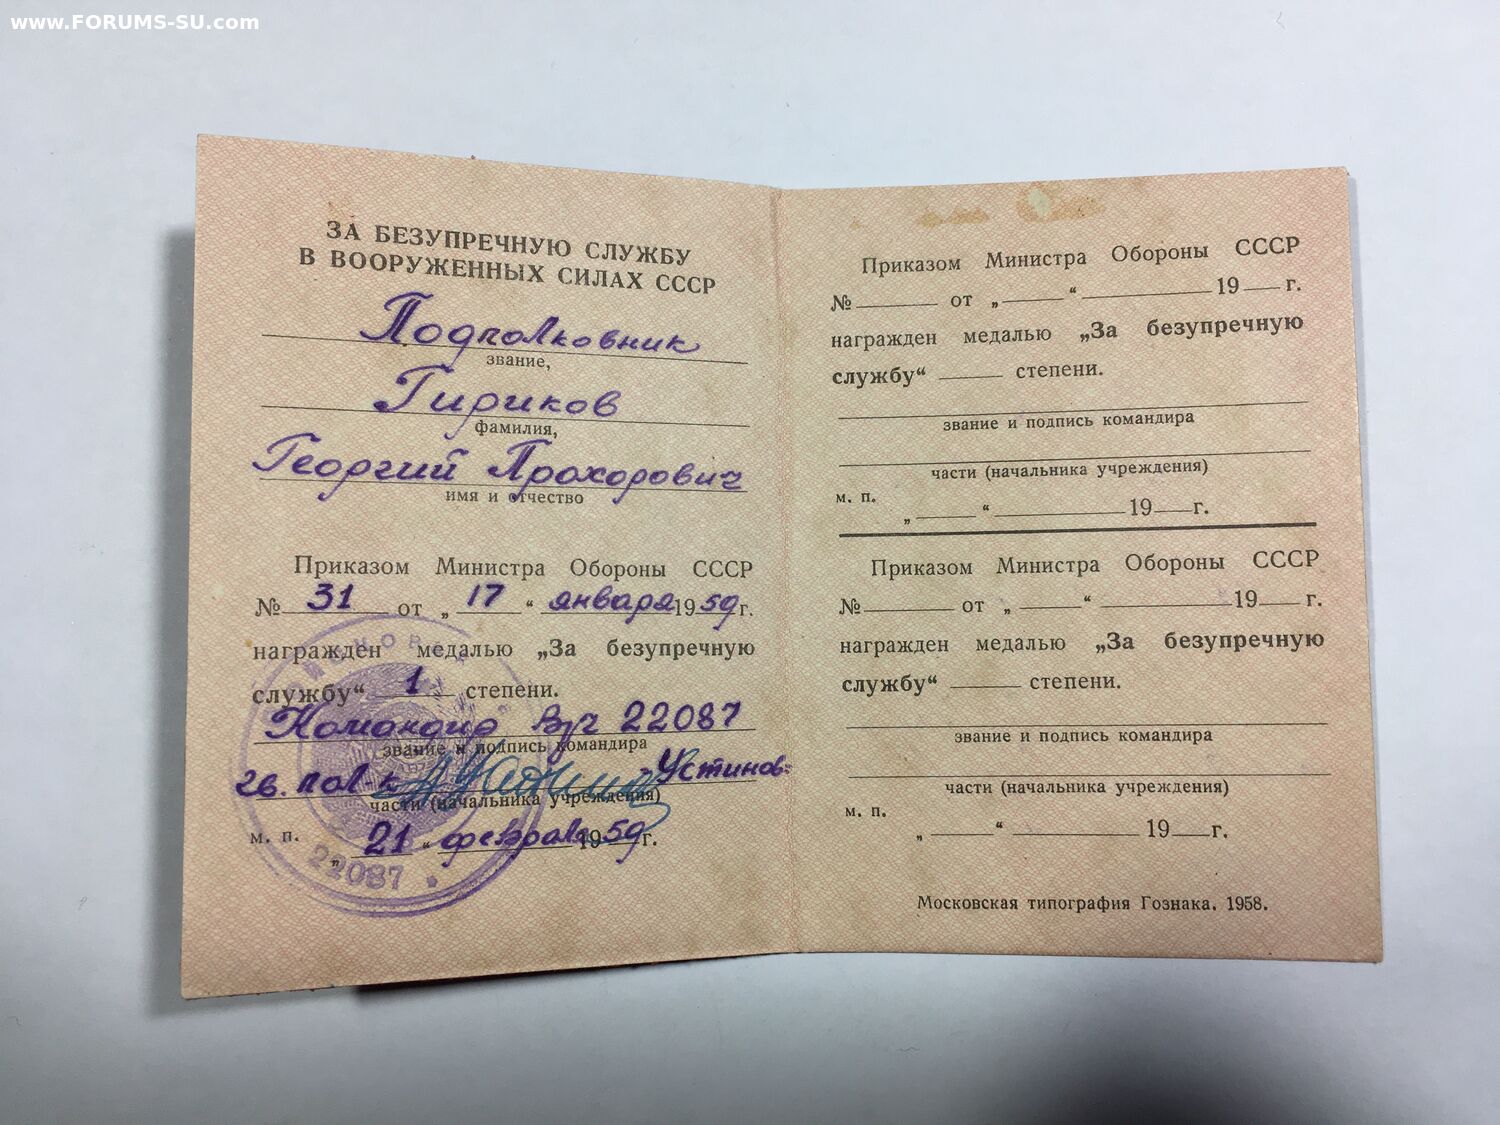 www.FORUMS-SU.com
ЗА БЕЗУПРЕЧНУЮ СЛУЖБУ
В ВООРУЖЕННЫХ СИЛАХ СССР
Подполковник
звание,
Гириков
фамилия,
Георгий Прохорович
имя и отчество
Приказом Министра Обороны СССР
№ 31 от „ 17 “ января 1959 г.
награжден медалью „За безупречную
службу“ 1 степени.
Командир в/ч 22087
звание и подпись командира
гв. пол-к Устинов
части (начальника учреждения)
м. п. „ 21 “ февраля 1959 г.
22087
Приказом Министра Обороны СССР
№ от „ “ 19 г.
награжден медалью „За безупречную
службу“ степени.
звание и подпись командира
части (начальника учреждения)
м. п.
„ “ 19 г.
Приказом Министра Обороны СССР
№ от „ “ 19 г.
награжден медалью „За безупречную
службу“ степени.
звание и подпись командира
части (начальника учреждения)
м. п.
„ “ 19 г.
Московская типография Гознака. 1958.